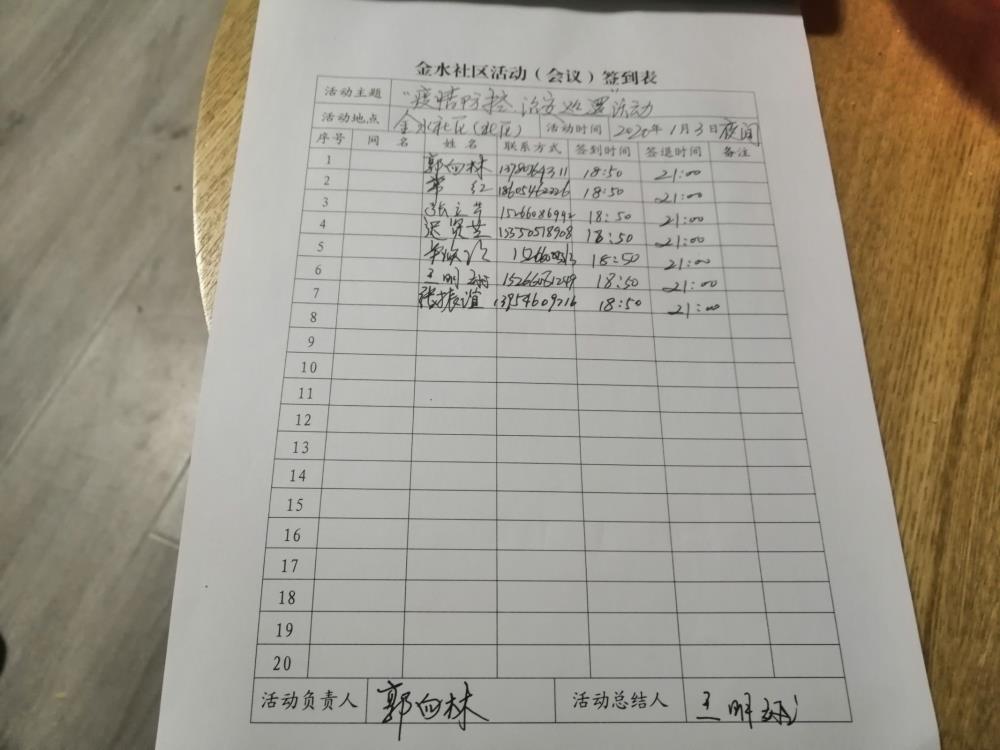 金水社区活动（会议）签到表
活动主题 "疫情防控 治安处置"活动
活动地点 金水社区(北区) 活动时间 2020年1月3日夜间
序号 间 名 姓 名 联系方式 签到时间 签退时间 备注
1 郭向林 13780764311 18:50 21:00
2 常红 18605462226 18:50 21:00
3 18:50 21:00
4 13550518908 18:50 21:00
5 18:50 21:00
6 王明 18:50 21:00
7 张振谊 13954609216 18:50 21:00
8
9
10
11
12
13
14
15
16
17
18
19
20
活动负责人 郭向林 活动总结人 王明